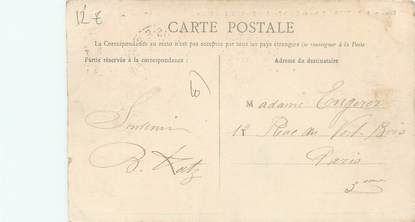 12 €
CARTE POSTALE
La Correspondance au recto n'est pas acceptée par tous les pays étrangers (se renseigner à la Poste
Partie réservée à la correspondance :
Adresse du destinataire
Madame
Souvenir
12 Rue du Vert Bois
B. Katz
Paris
3ème